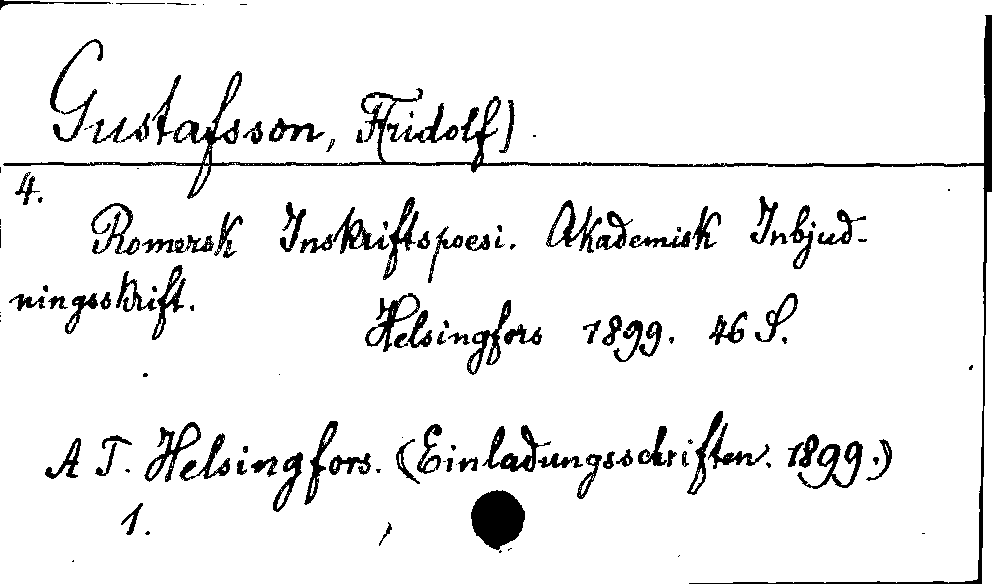 Gustafsson, Fridolf)
4.
Romersk Inskriftspoesi. Akademisk Inbjud-
ningsskrift.
Helsingfors 1899. 46 S.
A T. Helsingfors. (Einladungsschriften. 1899.)
1.